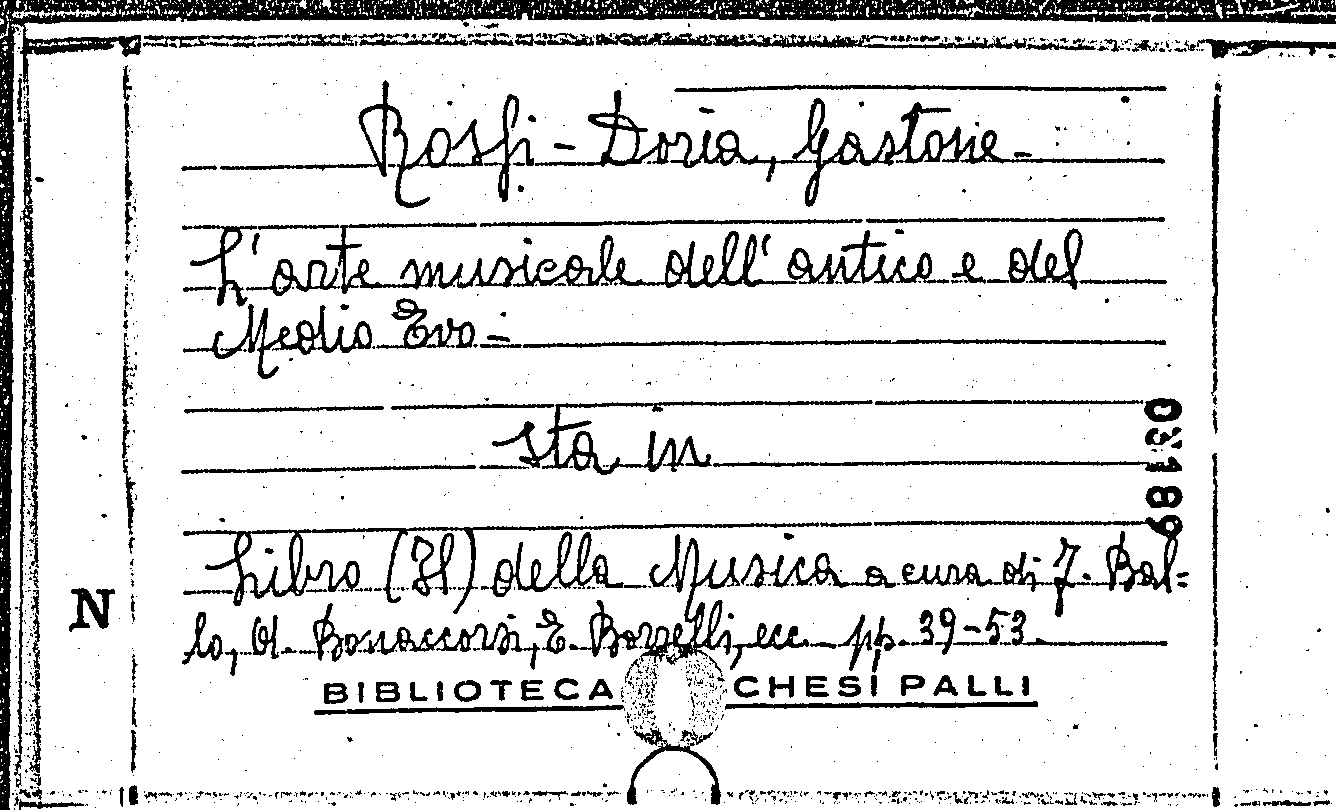 Rossi-Doria, Gastone-
L'arte musicale dell'antico e del
Medio Evo-
sta in
Libro (Il) della Musica a cura di F. Bal=
lo, A. Bonaccorsi, E. Borrelli, ecc. pp. 39-53.
BIBLIOTECA CHESI PALLI
N
03189